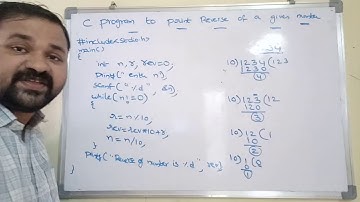 C program to print Reverse of a given number
#include<stdio.h>
main()
{
int n, r, rev=0;
printf(" enter n");
scanf(" %d", &n);
while(n!=0)
{
r = n%10,
rev=rev*10+r,
n = n/10,
}
printf("Reverse of number is %d", rev)
}
10)1234(123
1230
4
10)123(12
120
3
10)12(1
10
2
10)1(0
0
1